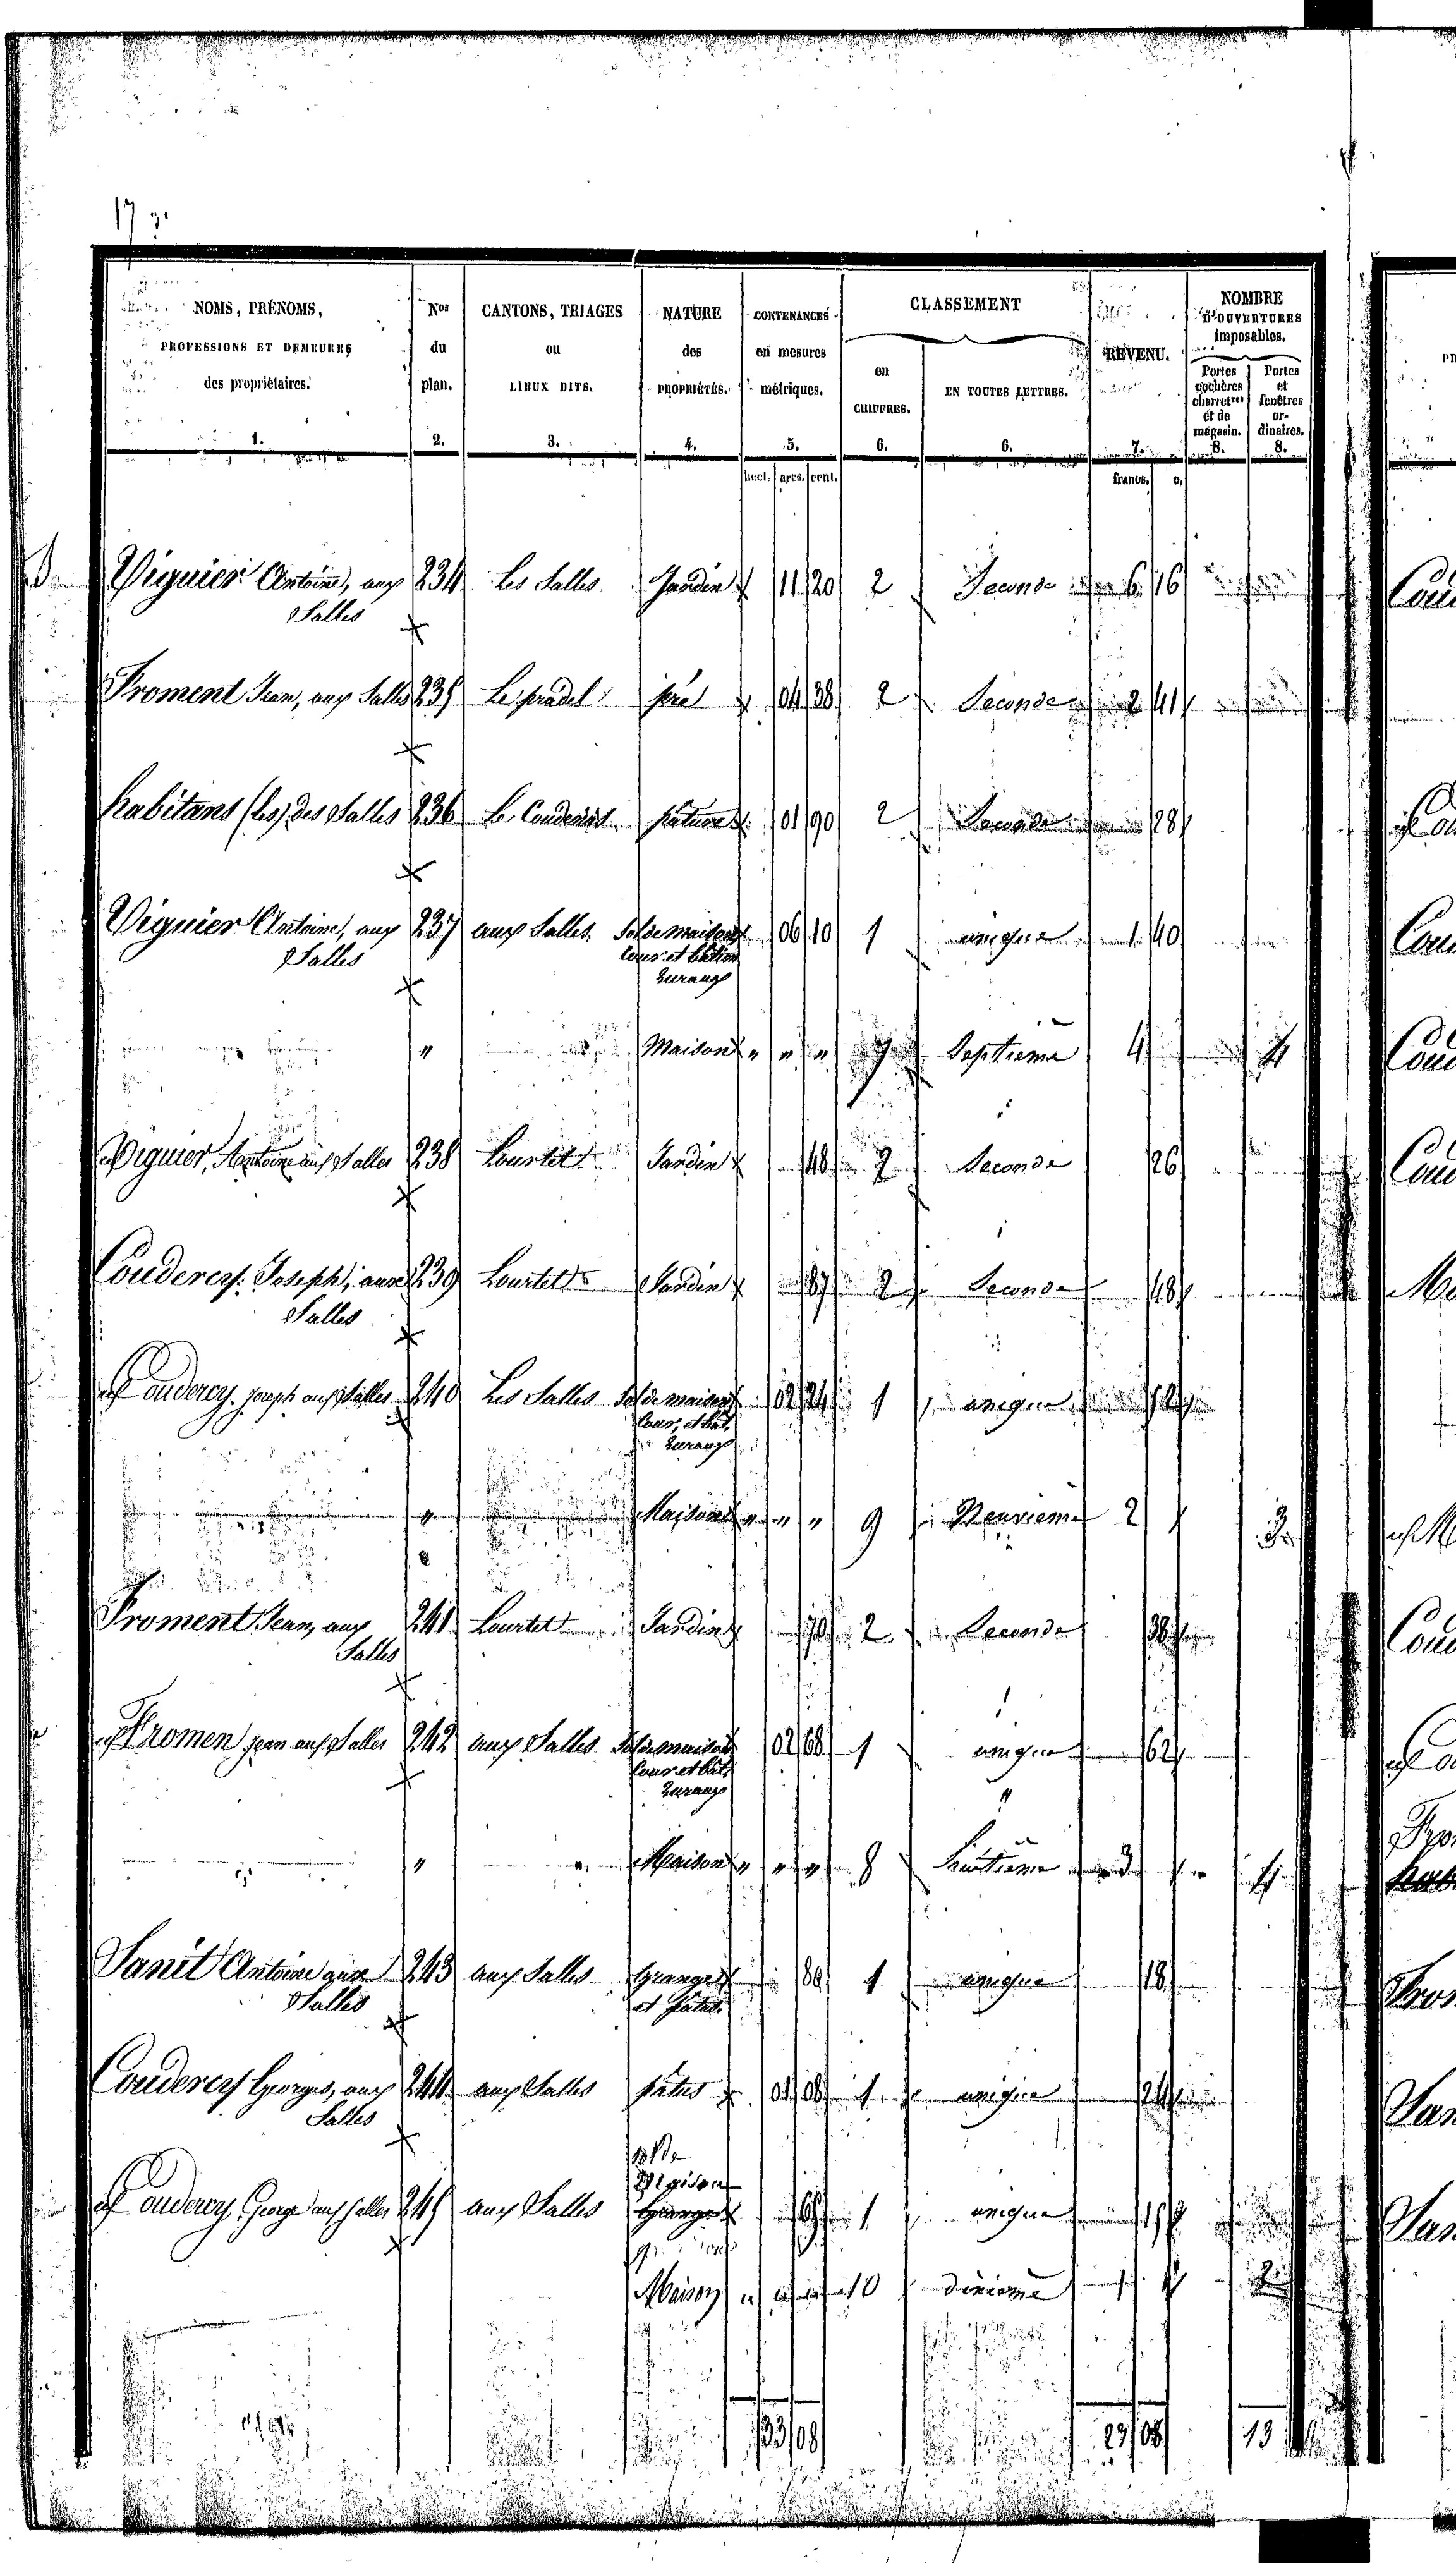 17
NOMS, PRÉNOMS, PROFESSIONS ET DEMEURES des propriétaires. 1.
Nos du plan. 2.
CANTONS, TRIAGES ou LIEUX DITS. 3.
NATURE des PROPRIÉTÉS. 4.
CONTENANCES en mesures métriques. 5.
CLASSEMENT
en CHIFFRES. 6.
EN TOUTES LETTRES. 6.
REVENU. 7.
NOMBRE D'OUVERTURES imposables.
Portes cochères charretres et de magasin. 8.
Portes et fenêtres ordinaires. 8.
hect. ares. cent. francs. c.
Viguier Antoine, aux 234 Les Salles Jardin 11 20 2 Seconde 6 16
Salles
Froment Jean, aux Salles 235 Le pradel pré 04 38 2 Seconde 2 41
habitans (les) des Salles 236 pature 01 90 2 Seconde 28
Viguier Antoine, aux 237 aux Salles Sol de maison 06 10 1 unique 1 40
Salles Cour et batim
ruraux
" Maison " " " 7 Septieme 4 4
Viguier, Antoine aux Salles 238 Lourtet Jardin 48 2 Seconde 26
Coudercy Joseph, aux 239 Lourtet Jardin 87 2 Seconde 48
Salles
Coudercy joseph aux Salles 240 Les Salles Sol de maison 02 24 1 unique 52
Cour, et bat,
ruraux
" Maison " " " 9 Neuvieme 2 3
Froment Jean, aux 241 Lourtet Jardin 70 2 Seconde 38
Salles
Fromen jean aux Salles 242 aux Salles Sol de maison 02 68 1 unique 62
Cour et bat,
ruraux
" Maison " " " 8 huitieme 3 4
Sanit Antoine aux 243 aux Salles Grange 80 1 unique 18
Salles et patus
Coudercy Georges, aux 244 aux Salles patus 01 08 1 unique 24
Salles
Coudercy George aux Salles 245 aux Salles Maison Grange 1 unique 15
Maison " 10 dixieme 2
33 08 23 08 13